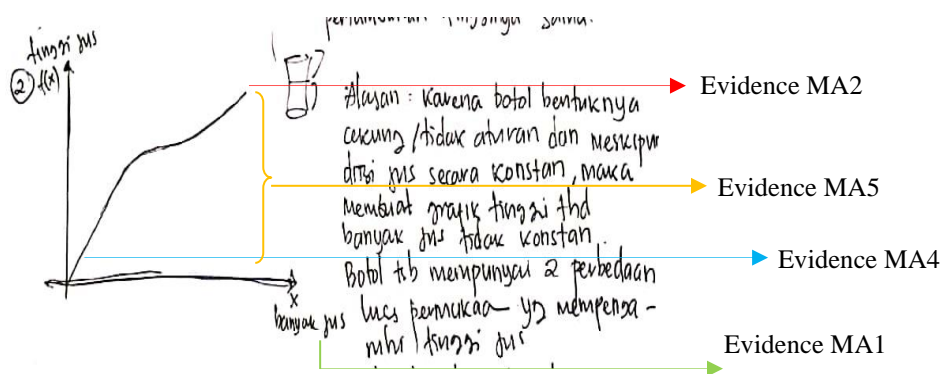 pertumbuhan tingginya sama.
tinggi jus
2 f(x)
Alasan : Karena botol bentuknya
cekung / tidak aturan dan meskipun
diisi jus secara konstan, maka
membuat grafik tinggi thd
banyak jus tidak konstan.
Botol tsb mempunyai 2 perbedaan
luas permukaan yg mempenga-
ruhi tinggi jus
x
banyak jus
Evidence MA2
Evidence MA5
Evidence MA4
Evidence MA1